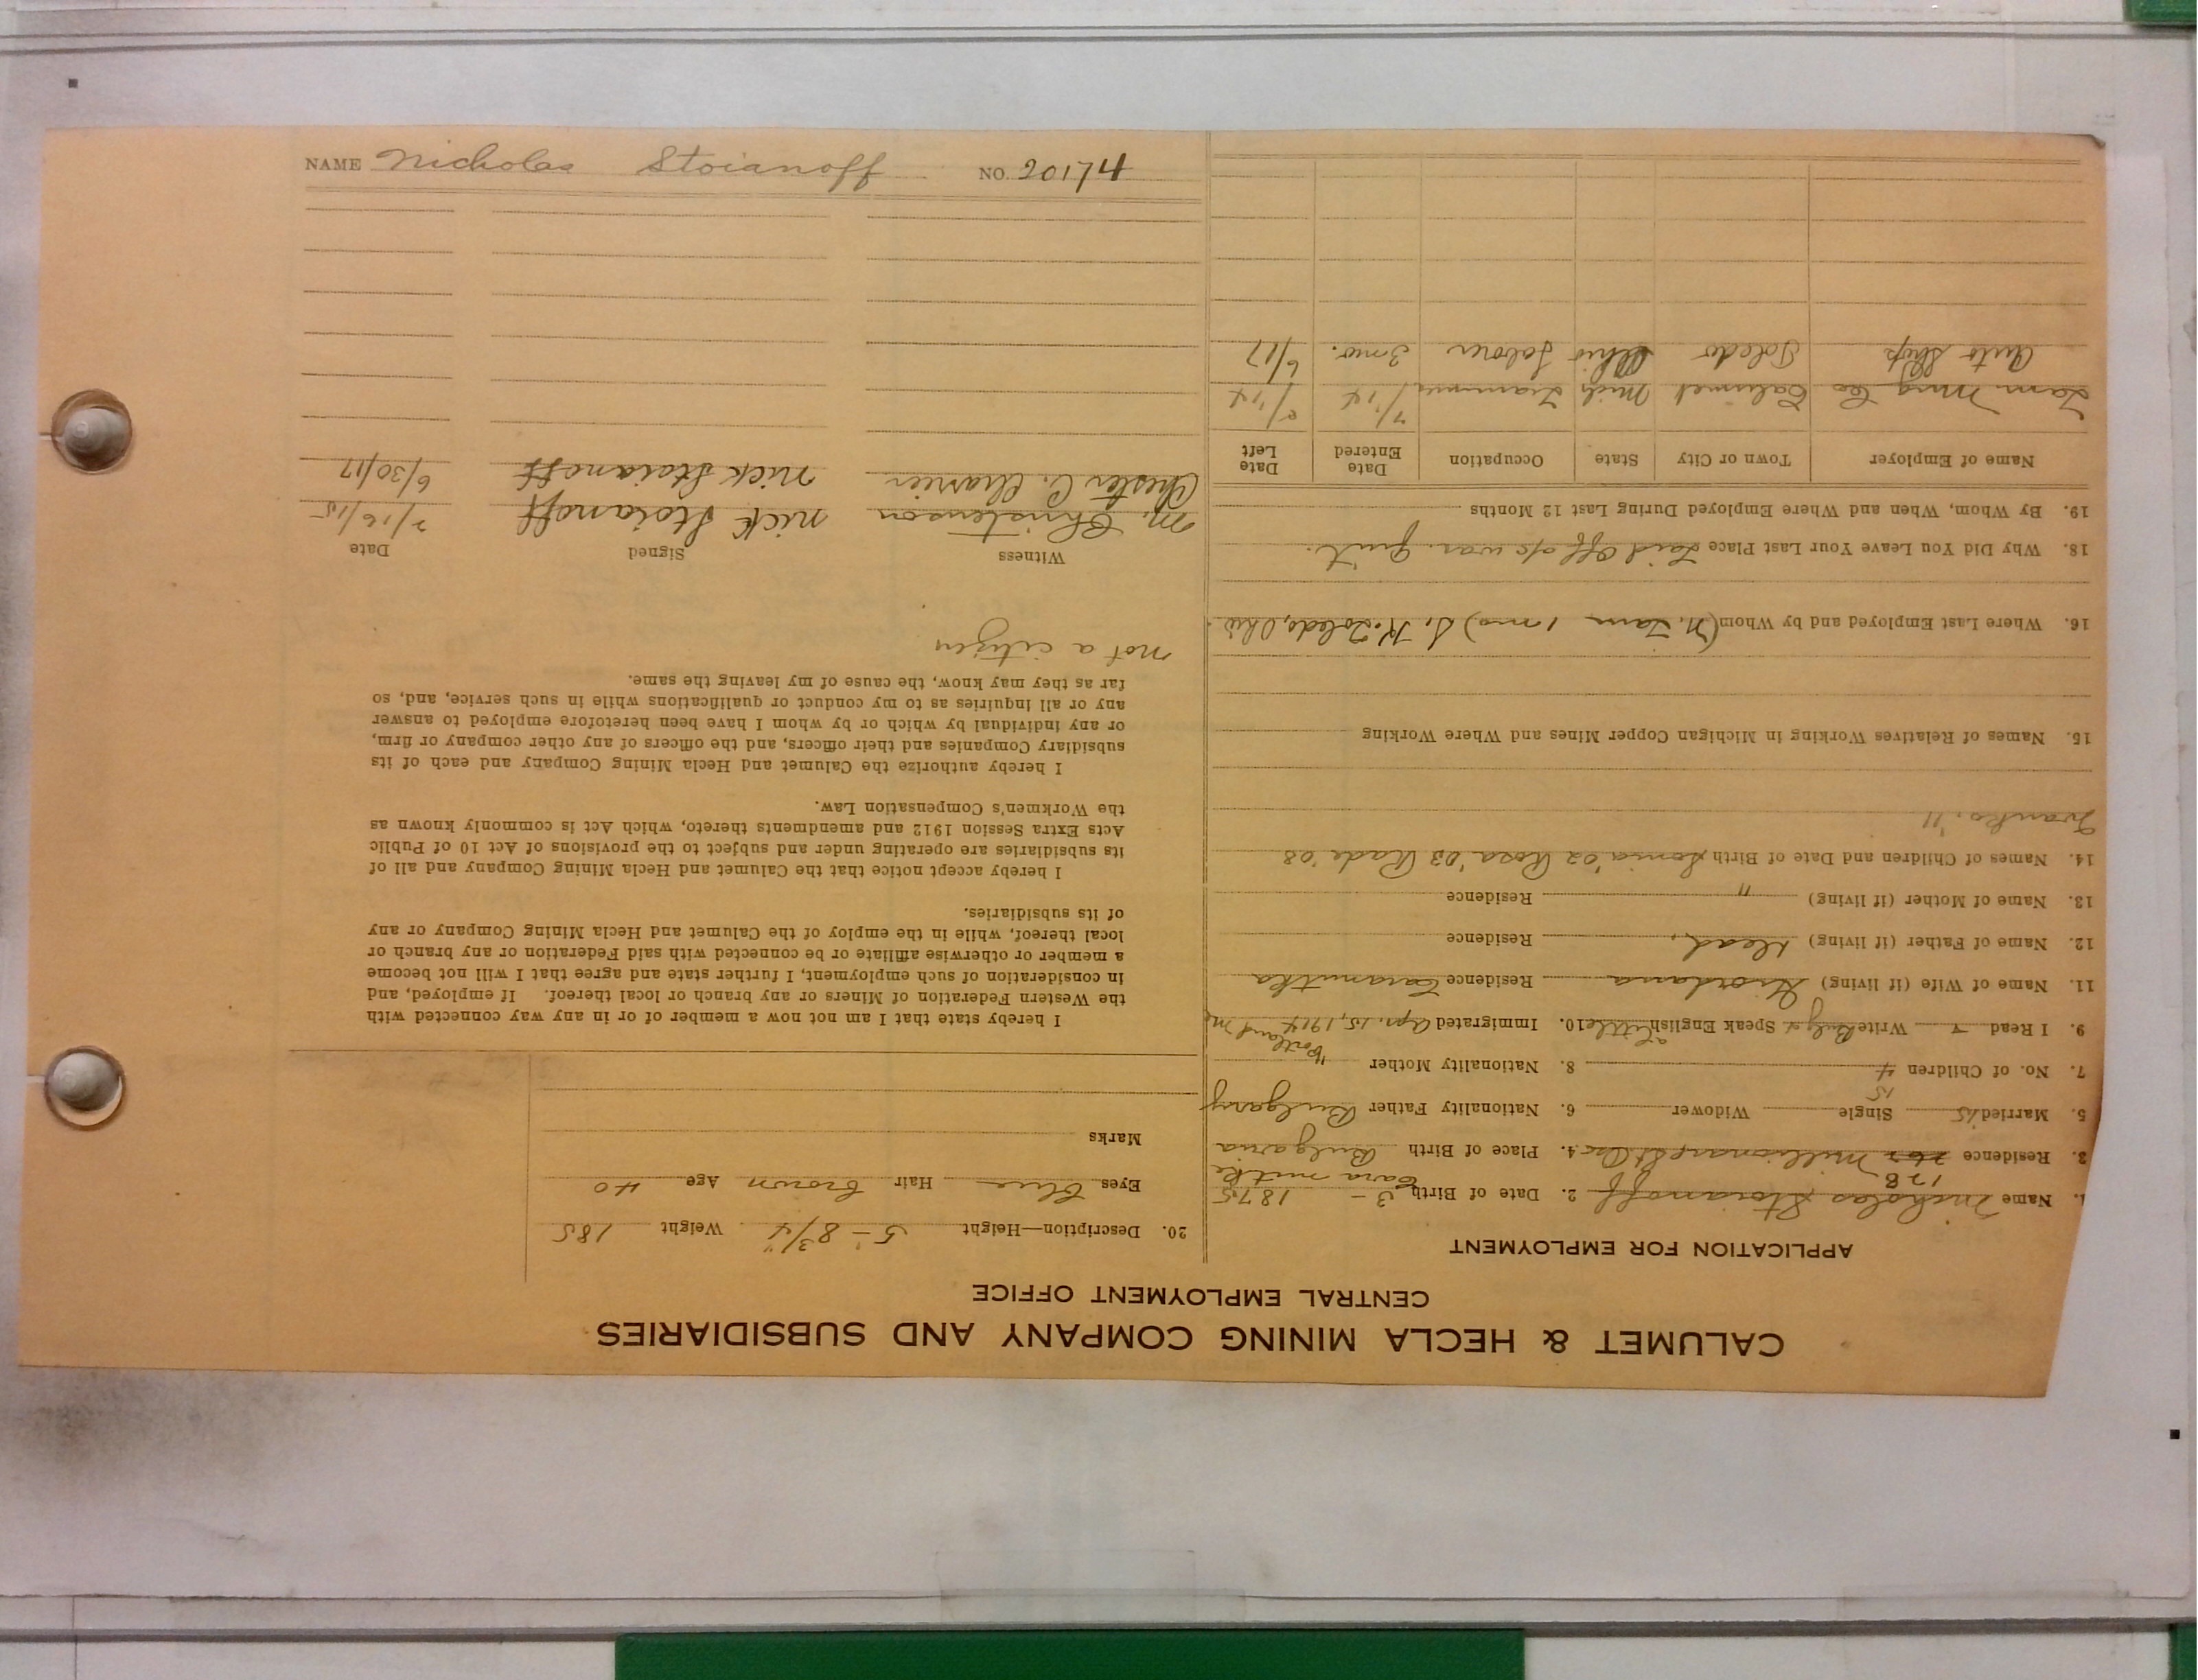 CALUMET & HECLA MINING COMPANY AND SUBSIDIARIES
CENTRAL EMPLOYMENT OFFICE
APPLICATION FOR EMPLOYMENT
1. Name Nicholas Stoianoff 2. Date of Birth 3 - 1875
178 Cara mutke
3. Residence Millionare St Osc 4. Place of Birth Bulgaria
5. Married '15 Single Widower 6. Nationality Father Bulgary
15
7. No. of Children 4 8. Nationality Mother "
Portland Me
9. I Read Write Bulg Speak English a Little 10. Immigrated Apr. 15, 1914
11. Name of Wife (if living) Residence Caramutka
12. Name of Father (if living) Dead. Residence
13. Name of Mother (if living) " Residence
14. Names of Children and Date of Birth '02 Rosa '03 Rade '08
Ivanko, '11
15. Names of Relatives Working in Michigan Copper Mines and Where Working
16. Where Last Employed and by Whom (N. Tam 1 mo) Toledo, Ohio.
18. Why Did You Leave Your Last Place Laid off a/c war. Quit.
19. By Whom, When and Where Employed During Last 12 Months
Name of Employer Town or City State Occupation Date Entered Date Left
Tam Mng Co Calumet Mich Trammer 7/'14 8/'14
Auto Shop Toledo Ohio Laborer 3 mo. 6/17
20. Description—Height 5 - 8 3/4" Weight 185
Eyes Blue Hair brown Age 40
Marks
I hereby state that I am not now a member of or in any way connected with
the Western Federation of Miners or any branch or local thereof. If employed, and
in consideration of such employment, I further state and agree that I will not become
a member or otherwise affiliate or be connected with said Federation or any branch or
local thereof, while in the employ of the Calumet and Hecla Mining Company or any
of its subsidiaries.
I hereby accept notice that the Calumet and Hecla Mining Company and all of
its subsidiaries are operating under and subject to the provisions of Act 10 of Public
Acts Extra Session 1912 and amendments thereto, which Act is commonly known as
the Workmen's Compensation Law.
I hereby authorize the Calumet and Hecla Mining Company and each of its
subsidiary Companies and their officers, and the officers of any other company or firm,
or any individual by which or by whom I have been heretofore employed to answer
any or all inquiries as to my conduct or qualifications while in such service, and, so
far as they may know, the cause of my leaving the same.
not a citizen
Witness Signed Date
M. Christenson Nick Stoianoff 7/16/15
Chester C. Charrier Nick Stoianoff 6/30/17
NAME Nicholas Stoianoff NO. 20174